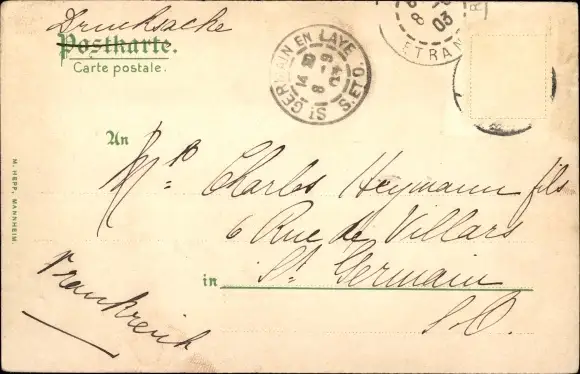 Drucksache
Postkarte.
Carte postale.
ST GERMAIN EN LAYE
S. ET O.
8
03
ETRAN
An
Mr Charles Heymann fils
6 Rue de Villars
in St Germain
S-O.
Frankreich
M. HEPP, MANNHEIM